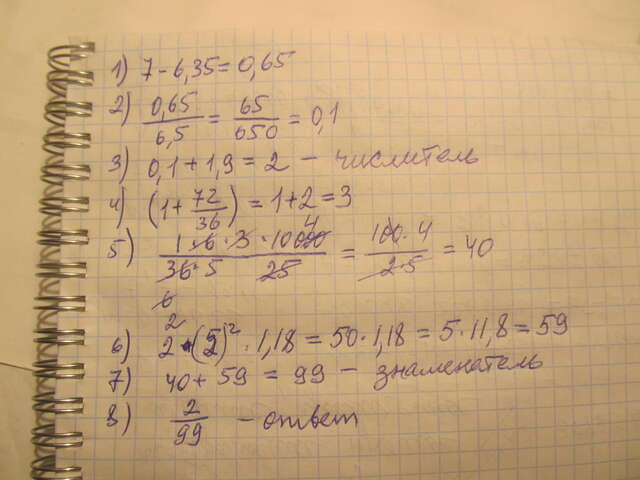 1) 7 - 6,35 = 0,65
2) 0,65/6,5 = 65/650 = 0,1
3) 0,1 + 1,9 = 2 - числитель
4) (1 + 72/36) = 1 + 2 = 3
4
5) 1·6·3·10000/36·5 25 = 100·4/2·5 = 40
6
2
6) 2·(5)²·1,18 = 50·1,18 = 5·11,8 = 59
7) 40 + 59 = 99 - знаменатель
8) 2/99 - ответ